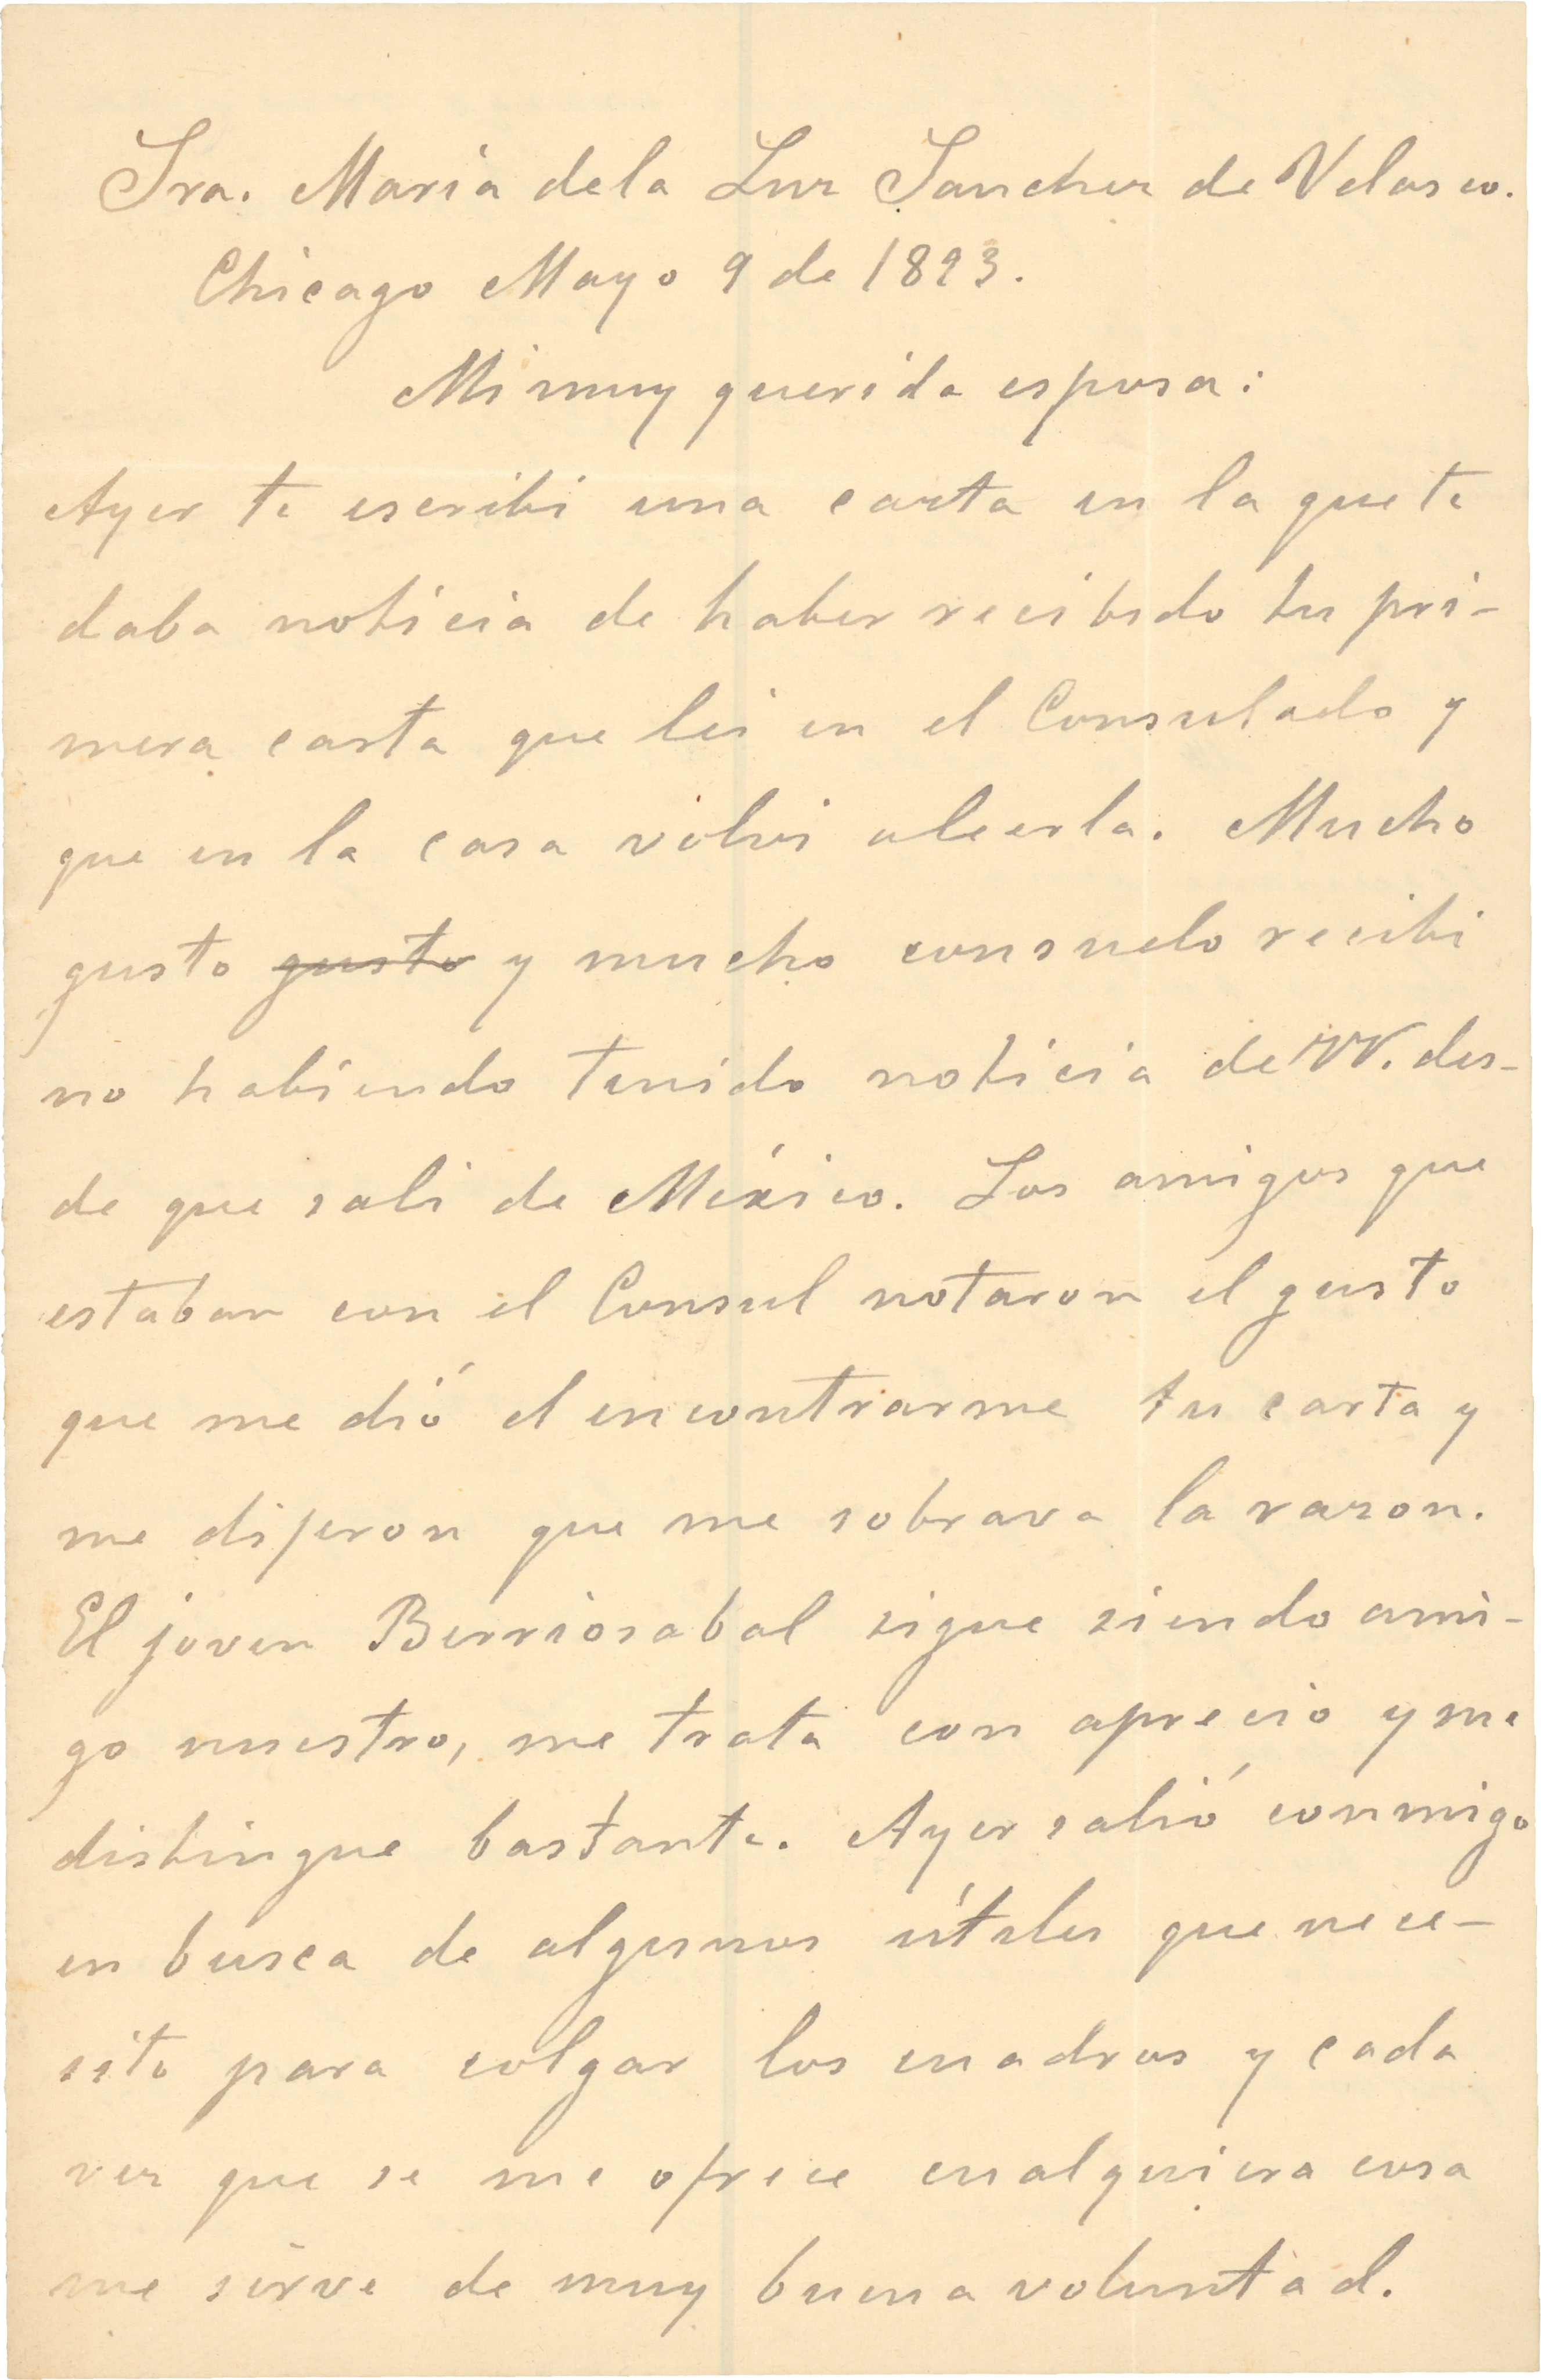 Sra. Maria dela Luz Sanchez de Velasco.
Chicago Mayo 9 de 1893.
Mi muy querida esposa:
Ayer te escribi una carta en la que te
daba noticia de haber recibido tu pri-
mera carta que lei en el Consulado y
que en la casa volvi aleerla. Mucho
gusto gusto y mucho consuelo recibi
no habiendo tenido noticia de VV. des-
de que sali de México. Los amigos que
estaban con el Consul notaron el gusto
que me dió el encontrarme tu carta y
me dijeron que me sobrava la razon.
El joven Berriosabal sigue siendo ami-
go nuestro, me trata con aprecio y me
distingue bastante. Ayer salió conmigo
en busca de algunos útiles que nece-
sito para colgar los cuadros y cada
vez que se me ofrece cualquiera cosa
me sirve de muy buena voluntad.